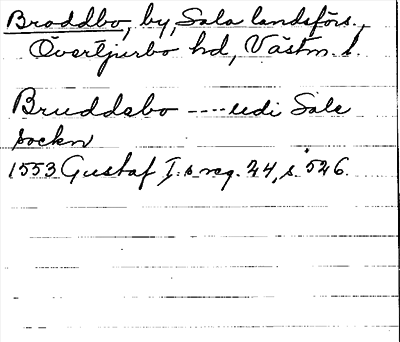 Broddbo, by, Sala landsförs.,
Övertjurbo hd, Västm. l.
Bruddebo ---- udi Sale
sockn
1553 Gustaf I:s reg. 24, s. 526.